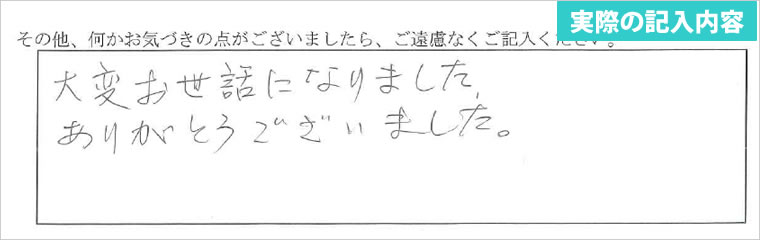 実際の記入内容
その他、何かお気づきの点がございましたら、ご遠慮なくご記入ください。
大変お世話になりました、
ありがとうございました。